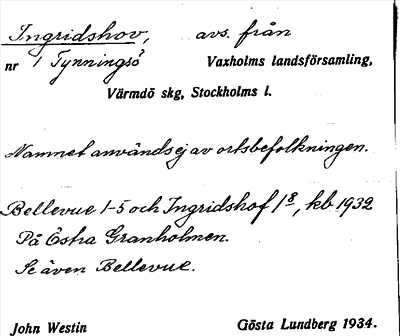 Ingridshov, avs. från
nr 1 Tynningsö Vaxholms landsförsamling,
Värmdö skg, Stockholms l.
Namnet användes ej av ortsbefolkningen.
Bellevue 1-5 och Ingridshof 1⁸, kb 1932
På Östra Granholmen.
Se även Bellevue.
John Westin Gösta Lundberg 1934.